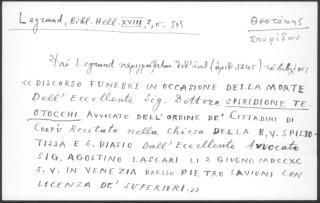 Legrand, Bibl. Hell. XVIII, 2, σ. 505
Θεοτόκης
Σπυρίδων
Ὑπὸ Legrand περιγράφεται (ἀριθ. 1245) τὸ βιβλίον:
«DISCORSO FUNEBRE IN OCCASIONE DELLA MORTE
Dell' Eccellente Sig. Dottore SPIRIDIONE TE-
OTOCCHI AVVOCATO DELL'ORDINE DE' CITTADINI DI
CORFÙ Recetato nella chiesa DELLA B.V. SPILIO-
TISSA E S. BIASIO Dall' Eccellente Avvocato
SIG. AGOSTINO LASCARI LI 2 GIUGNO MDCCXC
S.V. IN VENEZIA PRESSO PIETRO SAVIONI CON
LICENZA DE' SUPERIORI.»